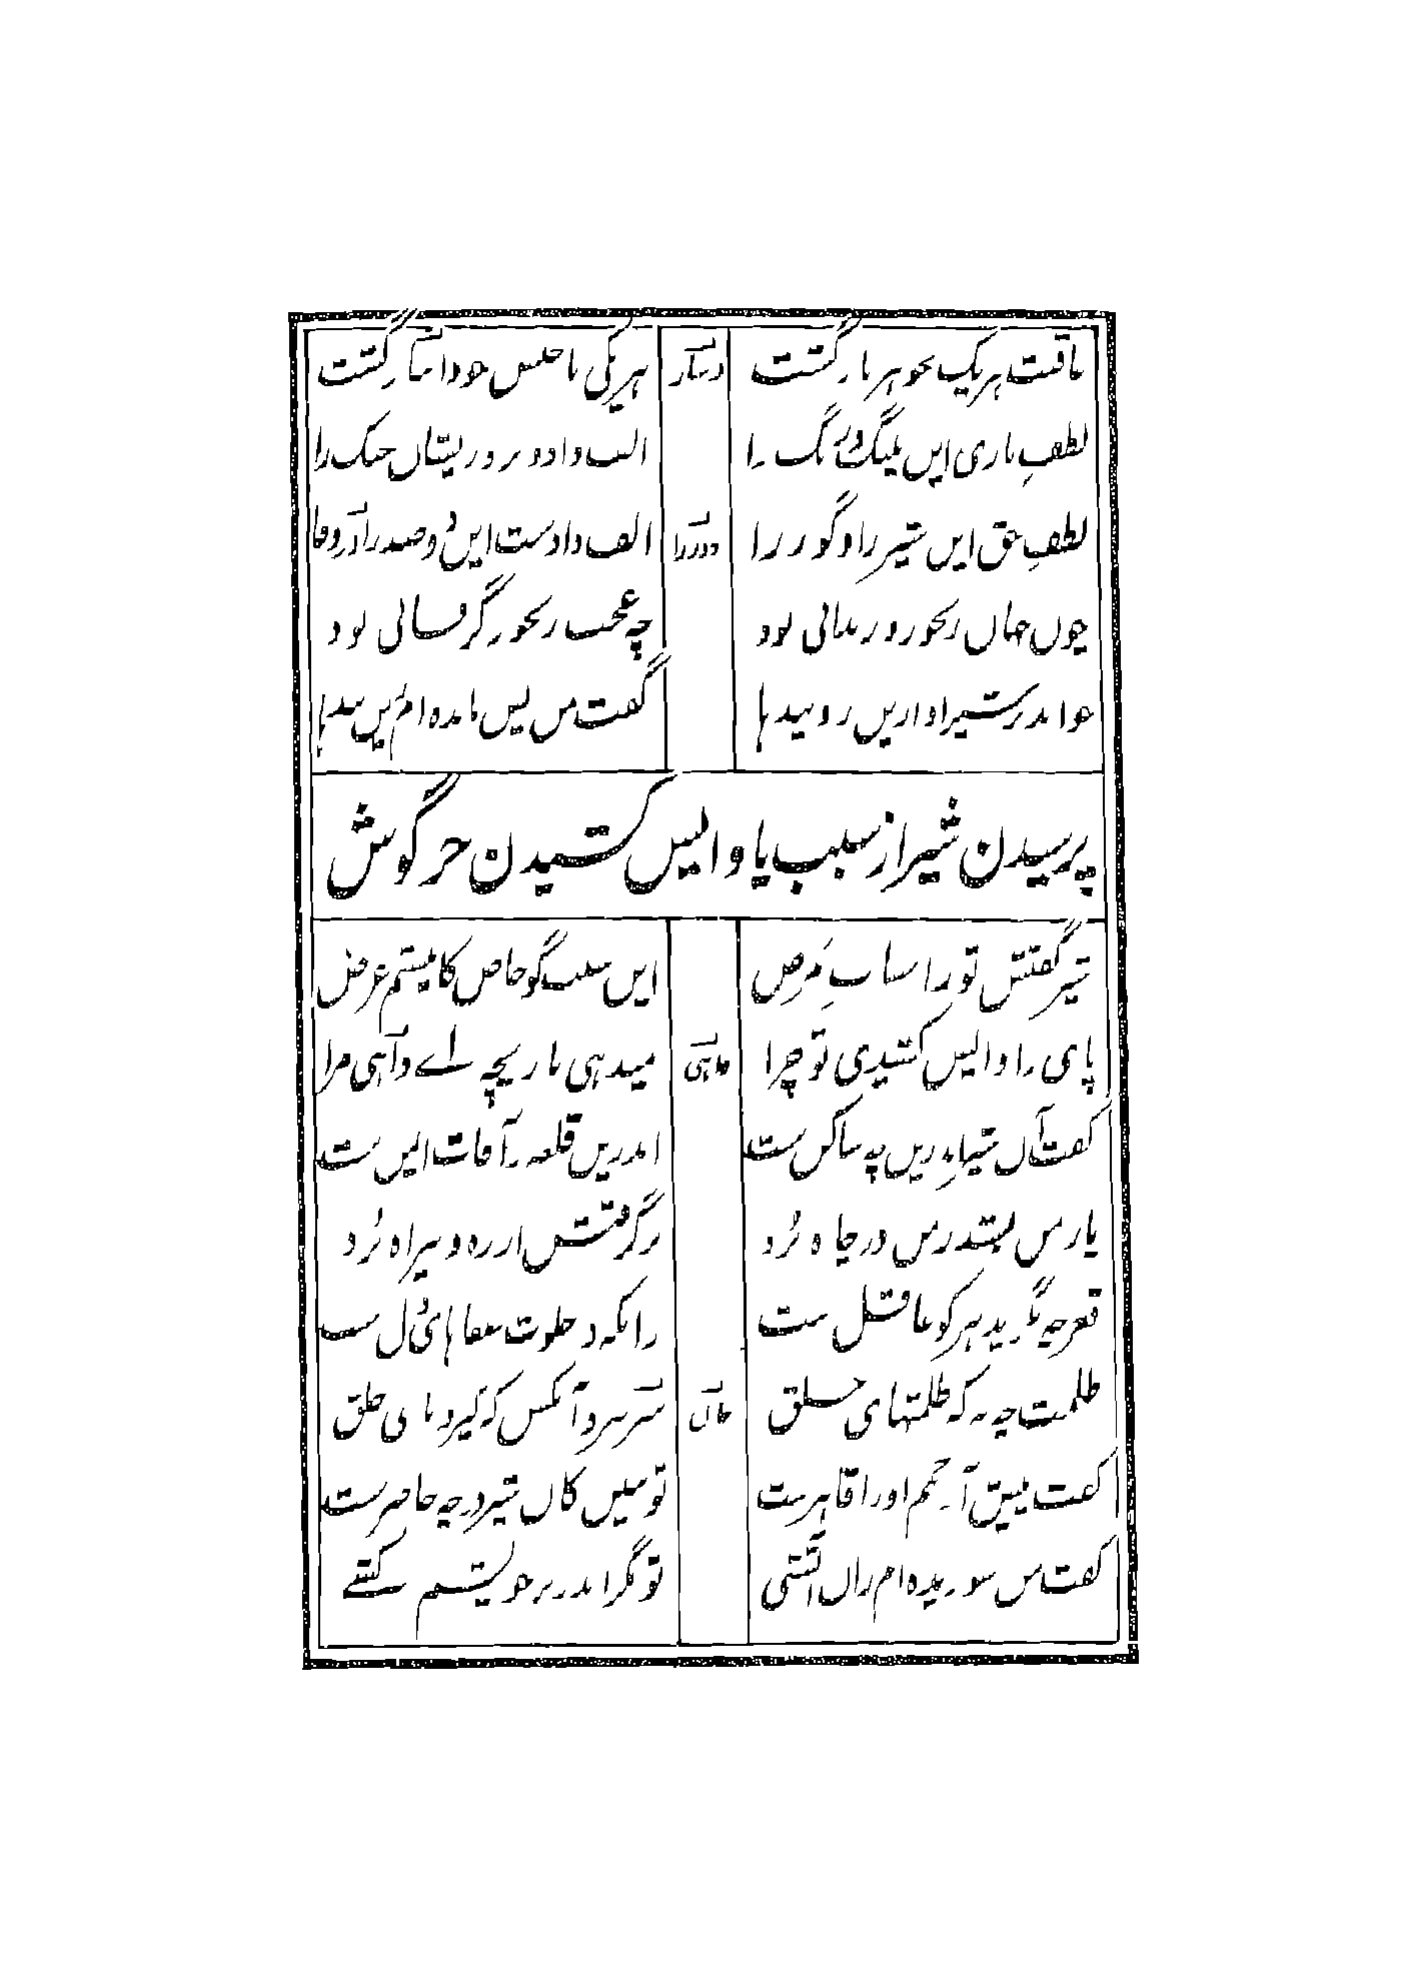 عاقبت هر یک بجوهر باز گشت
هر یکی با جنس خود انباز گشت
لطفِ باری این پلنگ و رنگ را
الف داد و برد زیشان جنگ را
لطفِ حق این شیر را و گور را
الف دادست این دو ضد را در وفا
چون جهان رنجور و زندانی بود
چه عجب رنجور گر فانی بود
خواند بر شیر او ازین رو پندها
گفت من پس مانده ام زین بندها
پرسیدن شیر از سبب پا واپس کشیدن خرگوش
شیر گفتش تو ز اسبابِ مَرض
این سبب گو خاص کاینستم غرض
پای را واپس کشیدی تو چرا
میدهی بازیچه اے واهی مرا
گفت آن شیر اندرین چه ساکن ست
اندرین قلعه ز آفات ایمن ست
یار من بستد ز من در چاه بُرد
برگرفتش از ره و بیراه بُرد
قعر چه بگزید هر کو عاقل ست
زانکه در خلوت صفاهای دل ست
ظلمت چه به که ظلمتهای خلق
سر نبرد آنکس که گیرد پای خلق
گفت پیش آ زخمم او را قاهرست
تو ببین کان شیر در چه حاضرست
گفت من سوزیده ام زان آتشی
تو مگر اندر بر خویشم کشے